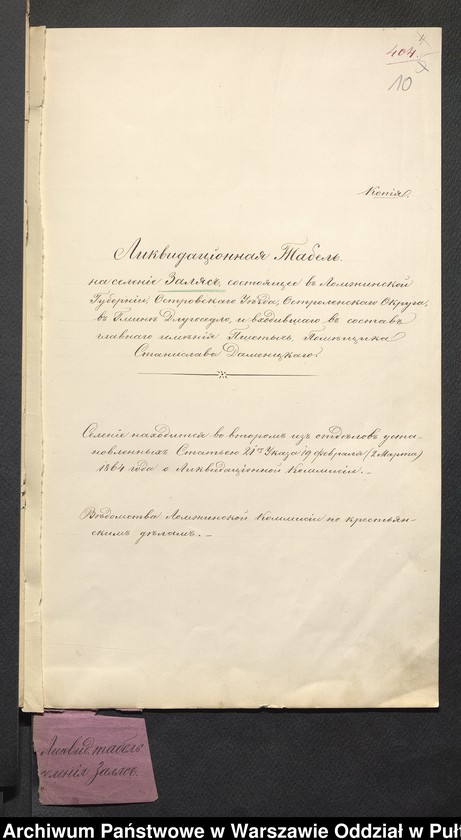 404.
10
Копія.
Ликвидаціонная Табель.
на селеніе Залясе, состоящее въ Ломжинской
Губерніи, Островскаго Уѣзда, Остроленскаго Округа,
въ Гминѣ Длугоседло, и входившаго въ составъ
главнаго имѣнія Помѣщика
Станислава
Селеніе находится во второмъ изъ отдѣловъ уста-
новленныхъ Статьею 21ю Указа 19 февраля (2 Марта)
1864 года о Ликвидаціонной Коммисіи. –
Вѣдомства Ломжинской Коммисіи по крестьян-
скимъ дѣламъ. –
Ликвид. табель
селенія Залясе.
Archiwum Państwowe w Warszawie Oddział w Puł